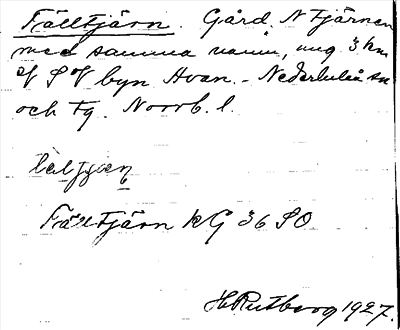 Fälltjärn. Gård. N Tjärnen
med samma namn, ung 3 km
af S of byn Avan. - Nederluleå sn
och tg. Norrb. l.
Fälltjärn KG 36 SO
H Rutberg 1927.